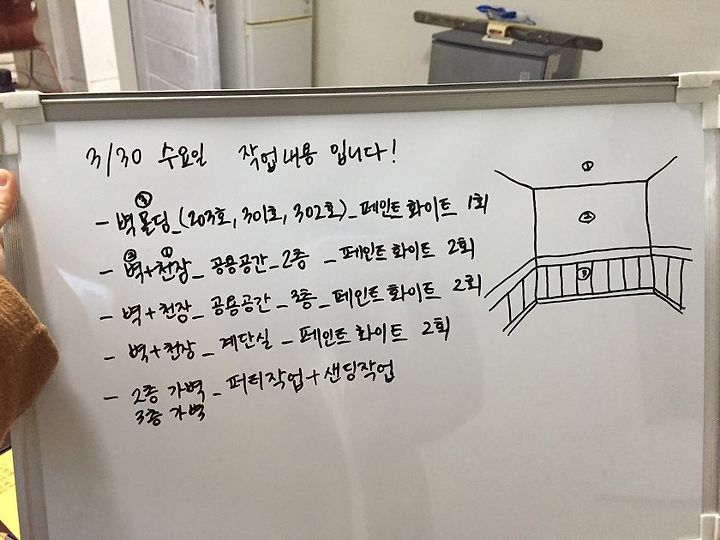 3/30 수요일 작업내용 입니다!
③
- 벽몰딩_(203호, 301호, 302호)_페인트 화이트 1회
② ①
- 벽+천장_ 공용공간_2층 _ 페인트 화이트 2회
- 벽+천장_ 공용공간_3층_페인트 화이트 2회
- 벽+천장_ 계단실 _ 페인트 화이트 2회
- 2층 가벽_ 퍼티작업+샌딩작업
3층 가벽
①
②
③